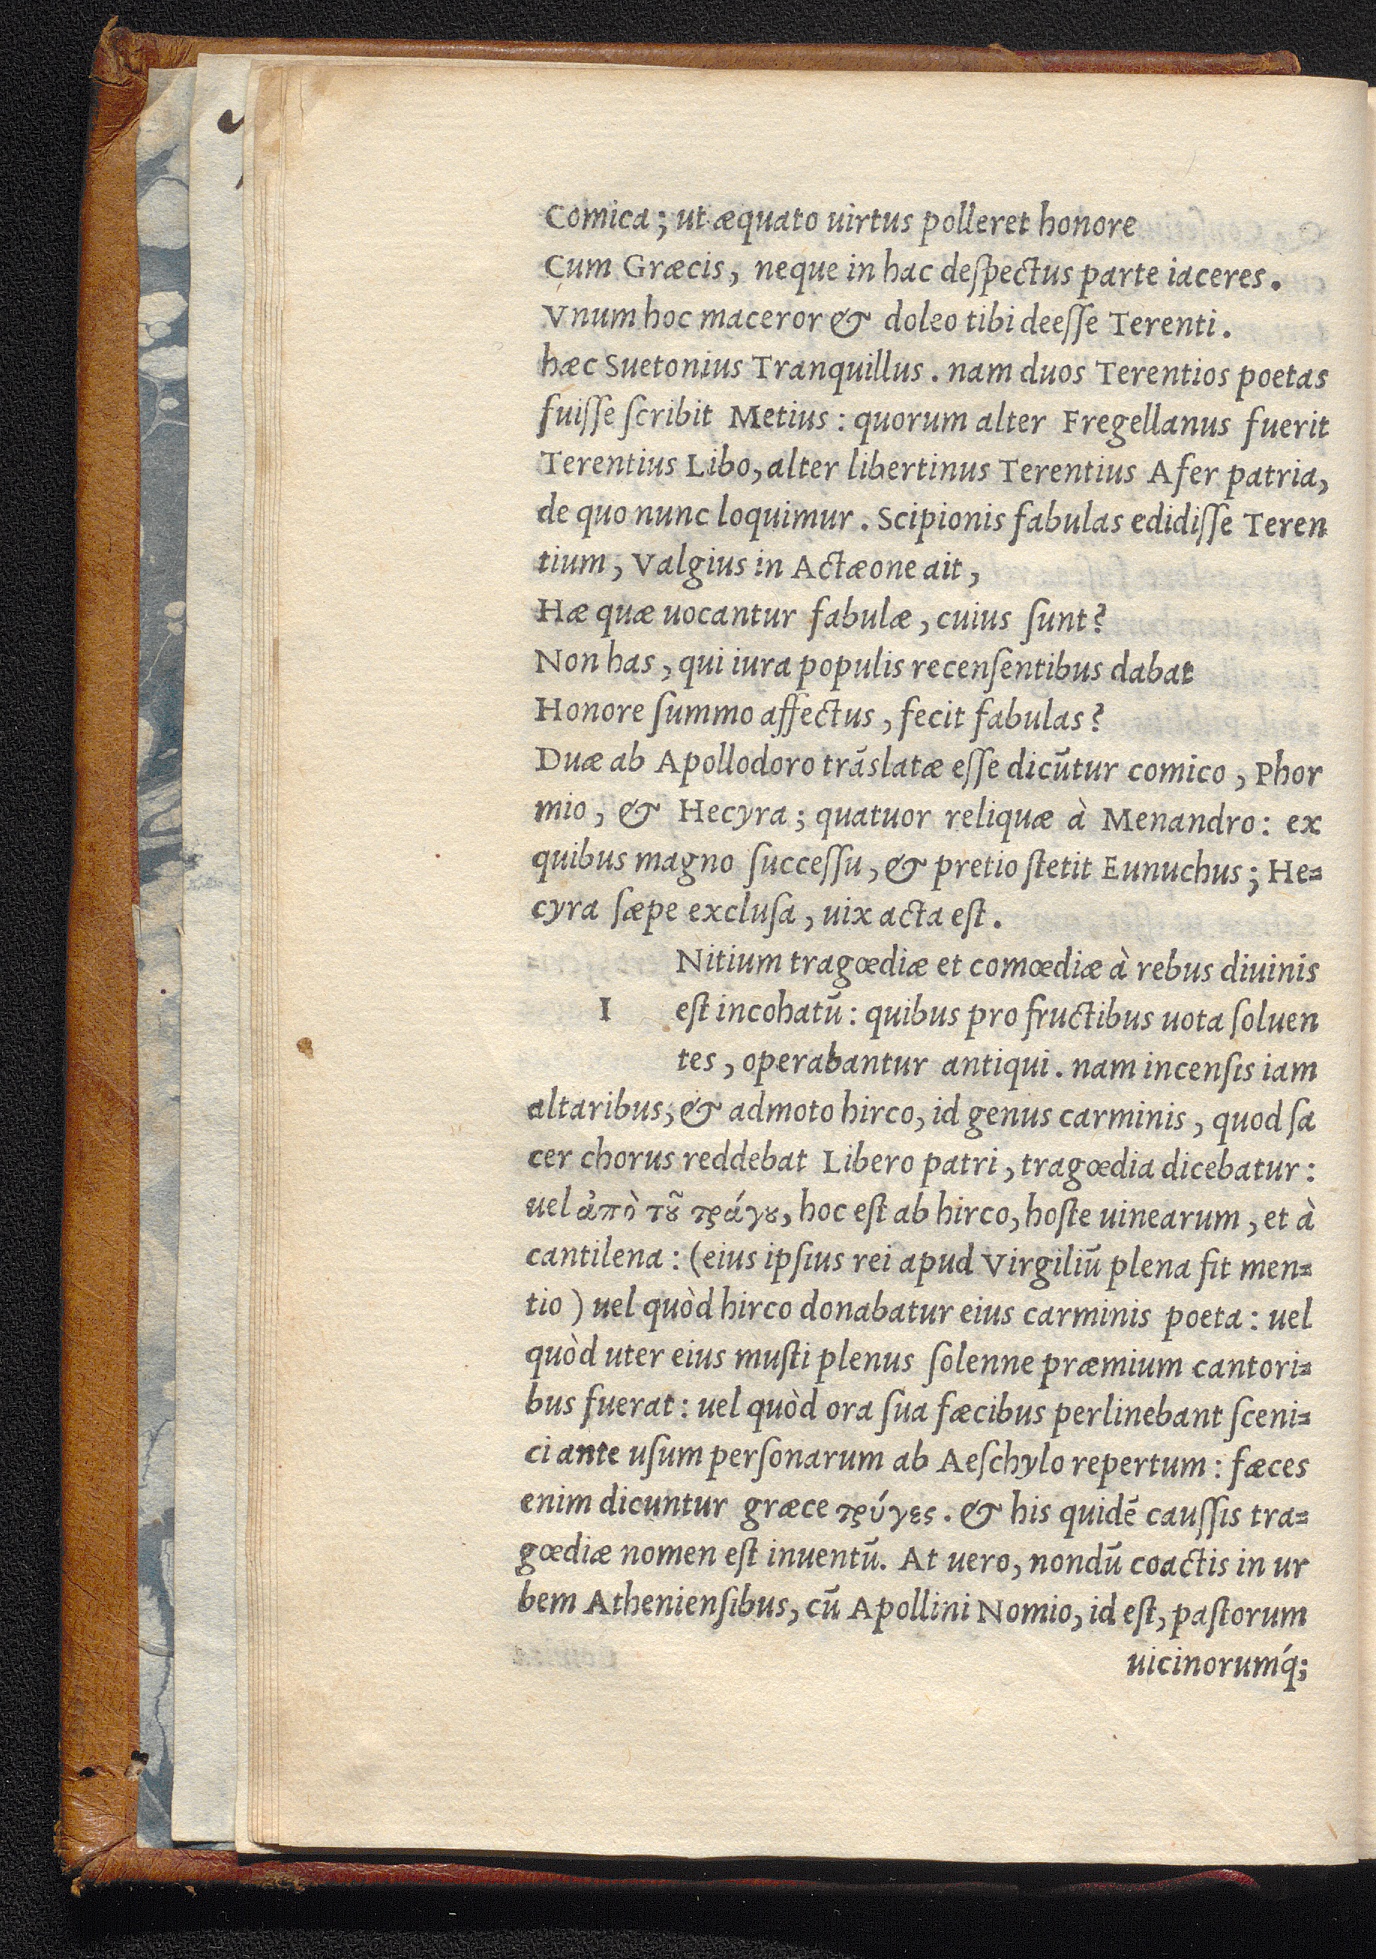 Comica; ut æquato uirtus polleret honore
Cum Græcis, neque in hac deſpectus parte iaceres.
Vnum hoc maceror & doleo tibi deeſſe Terenti.
hæc Suetonius Tranquillus. nam duos Terentios poetas
fuiſſe ſcribit Metius: quorum alter Fregellanus fuerit
Terentius Libo, alter libertinus Terentius Afer patria,
de quo nunc loquimur. Scipionis fabulas edidiſſe Teren
tium, Valgius in Actæone ait,
Hæ quæ uocantur fabulæ, cuius ſunt?
Non has, qui iura populis recenſentibus dabat
Honore ſummo affectus, fecit fabulas?
Duæ ab Apollodoro trāslatæ eſſe dicūtur comico, Phor
mio, & Hecyra; quatuor reliquæ à Menandro: ex
quibus magno ſucceſſu, & pretio ſtetit Eunuchus; He-
cyra ſæpe excluſa, uix acta eſt.
Nitium tragœdiæ et comœdiæ à rebus diuinis
I eſt incohatū: quibus pro fructibus uota ſoluen
tes, operabantur antiqui. nam incenſis iam
altaribus, & admoto hirco, id genus carminis, quod ſa
cer chorus reddebat Libero patri, tragœdia dicebatur:
uel ἀπὸ τοῦ τράγου, hoc eſt ab hirco, hoſte uinearum, et à
cantilena: (eius ipſius rei apud Virgiliū plena fit men-
tio) uel quòd hirco donabatur eius carminis poeta: uel
quòd uter eius muſti plenus ſolenne præmium cantori-
bus fuerat: uel quòd ora ſua fæcibus perlinebant ſceni-
ci ante uſum perſonarum ab Aeſchylo repertum: fæces
enim dicuntur græce τρύγες. & his quidē cauſſis tra-
gœdiæ nomen eſt inuentū. At uero, nondū coactis in ur
bem Athenienſibus, cū Apollini Nomio, id eſt, paſtorum
uicinorumq́;